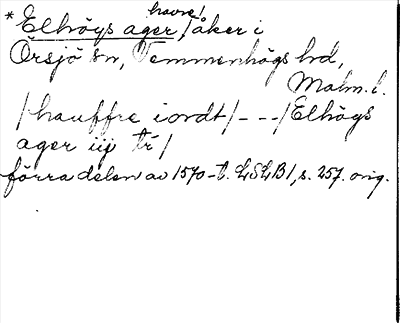 havre!
* Elhögs ager / åker i
Örsjö sn, Vemmenhögs hd,
Malm. l.
/ hauffre iordt / - - - / Elhögs
ager iij tr /
förra delen av 1570-t. LSLB 1, s. 257. orig.